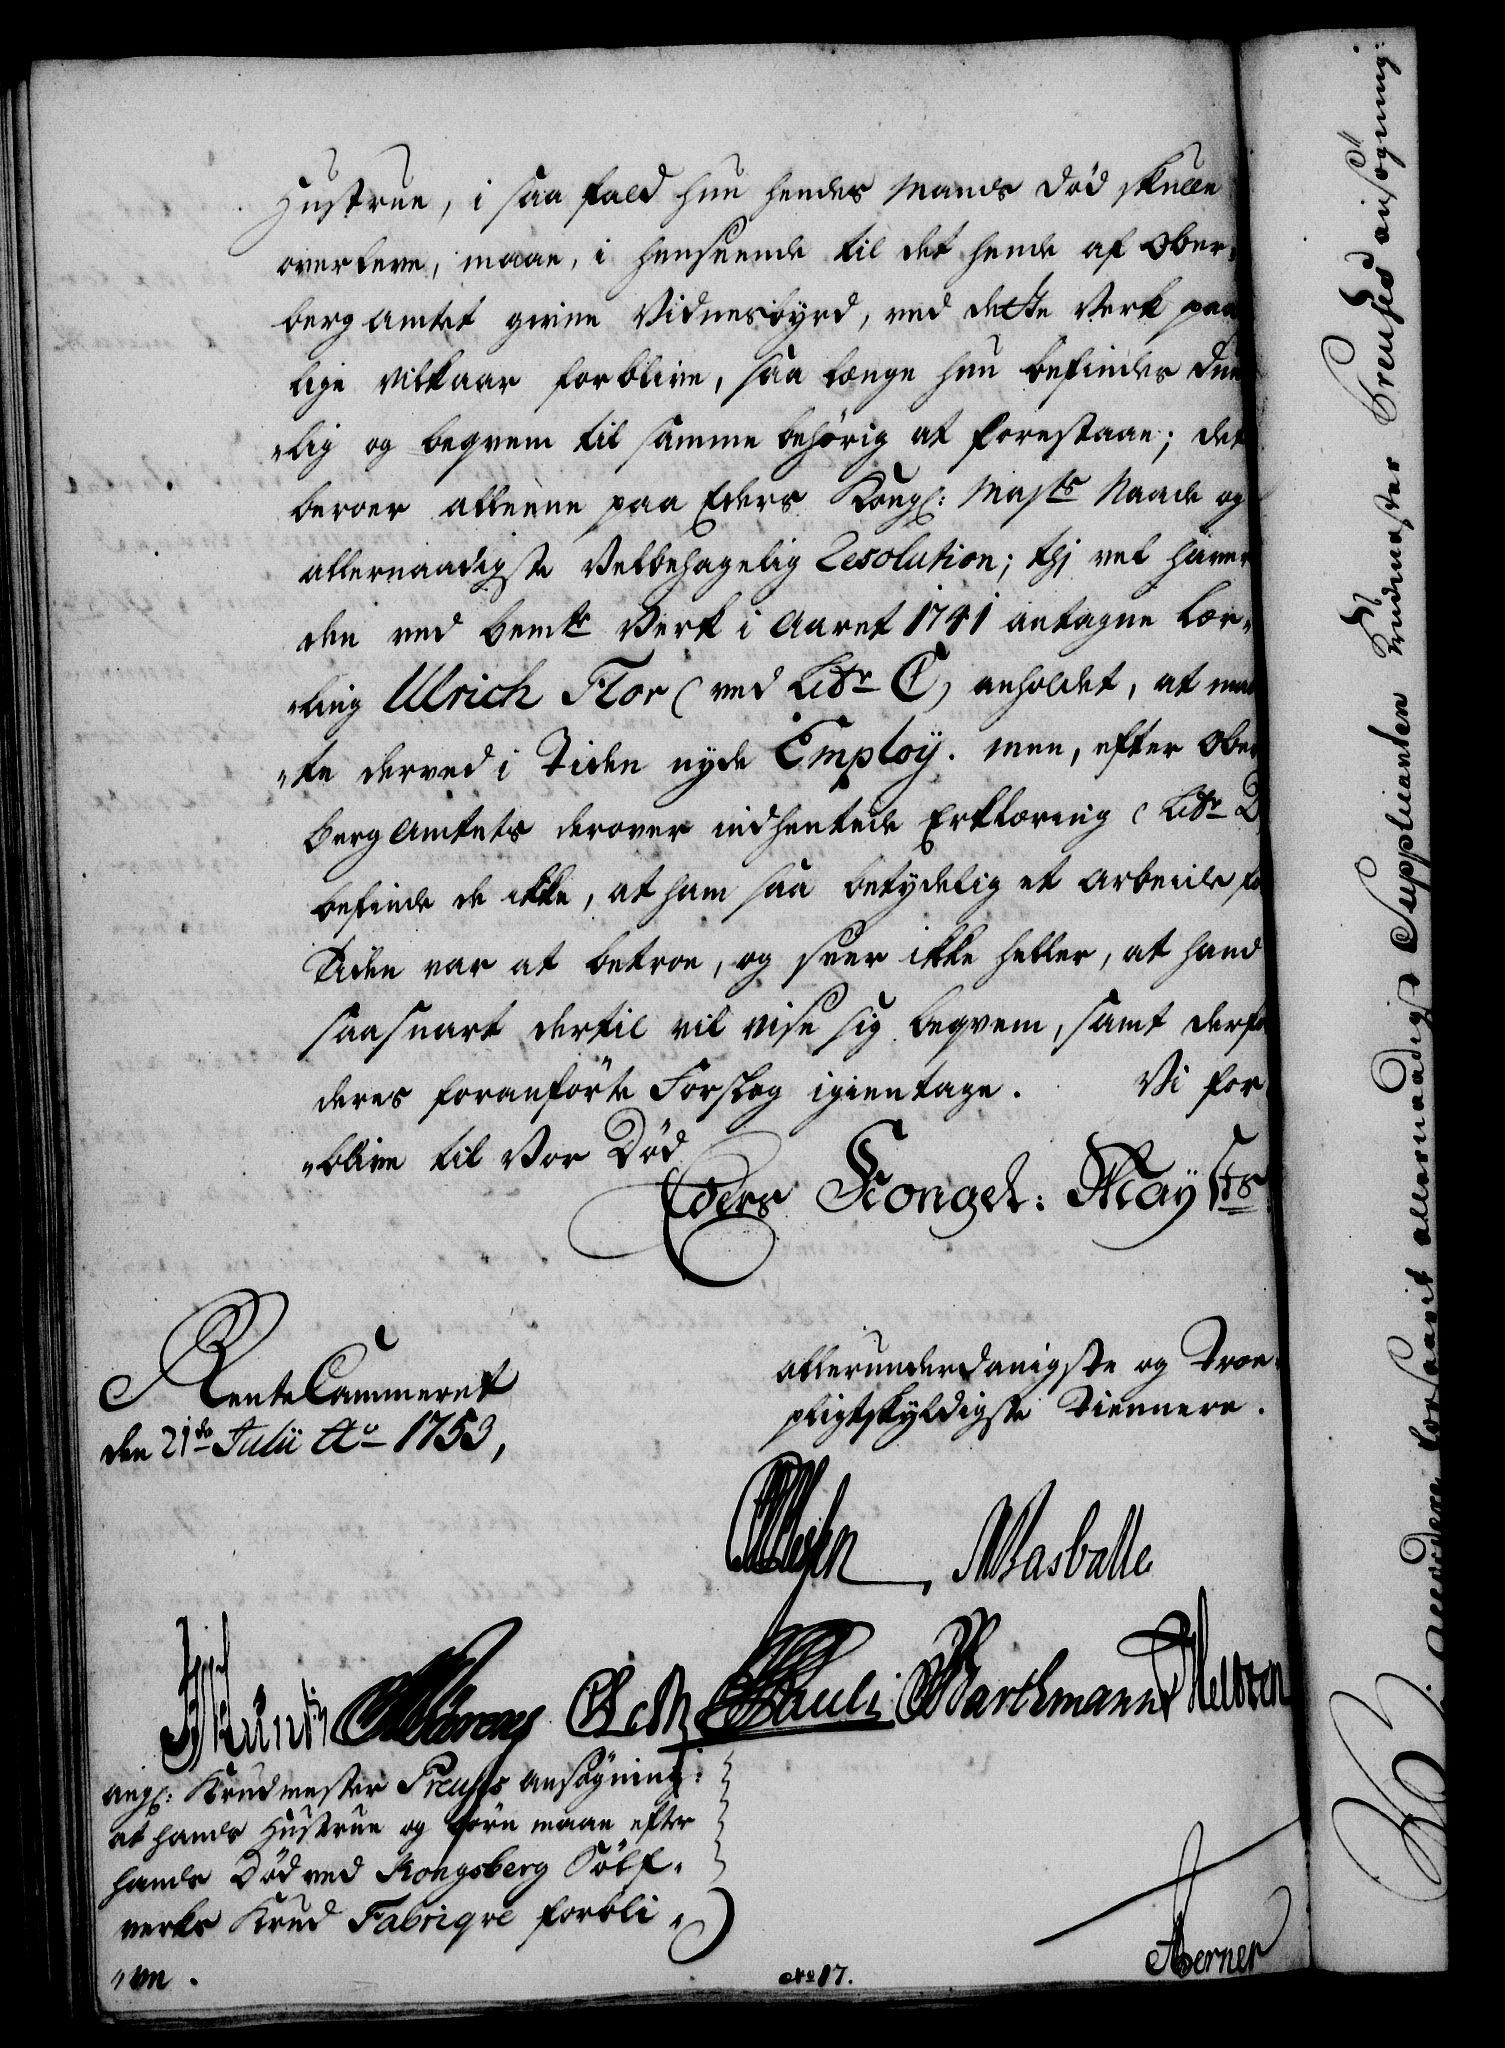 Hustrue, i saa fald hun hendes Mands Död skulle
overleve, maae, i henseende til det hende af Ober-
berg Amtet givne Vidnesbyrd, ved dette Verk paa
lige Vilkaar forblive, saa længe hun befindes due
„lig og beqvem til samme behörig at forestaae; det
beroer alleene paa Eders Kongl: Maj.ts Naade og
allernaadigste Velbehagelig Resolution; thj vel haver
den ved bemte Verk i Aaret 1741 antagne Lær-
„ling Ulrich Flor (ved Litr C) anholdet, at maa
„te derved i Tiden nyde Employ. men, efter Ober
berg Amtets derover indhentede Erklæring (Litr D
befinde de ikke, at ham saa betydelig et Arbeide for
Tiden var at betroe, og seer ikke heller, at hand
saa snart dertil vil vise sig beqvem, samt derfor
deres foranförte Forslag igientage. Vi for
„blive til Vor Död
Eders Kongel: Mayts
RenteCammeret
den 21de Julii Ao 1753,
allerunderdanigste og Troe-
pligtskyldigste Tiennere.
MBasballe
Pauli Barthmann
ang: Krudmester Preuses ansögning:
at hands Hustrue og börn maae efter
hands Död ved Kongsberg Sölf-
verks Krud Fabriqve forbli
„ve.
No 17.
Berner
allernaadigst Supplicanten Krudmester Preuses ansögning: